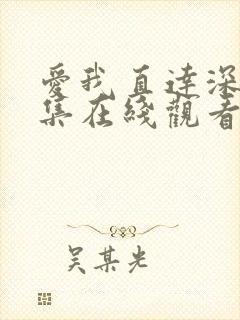 愛我直達深
集在綫觀看
吴某光